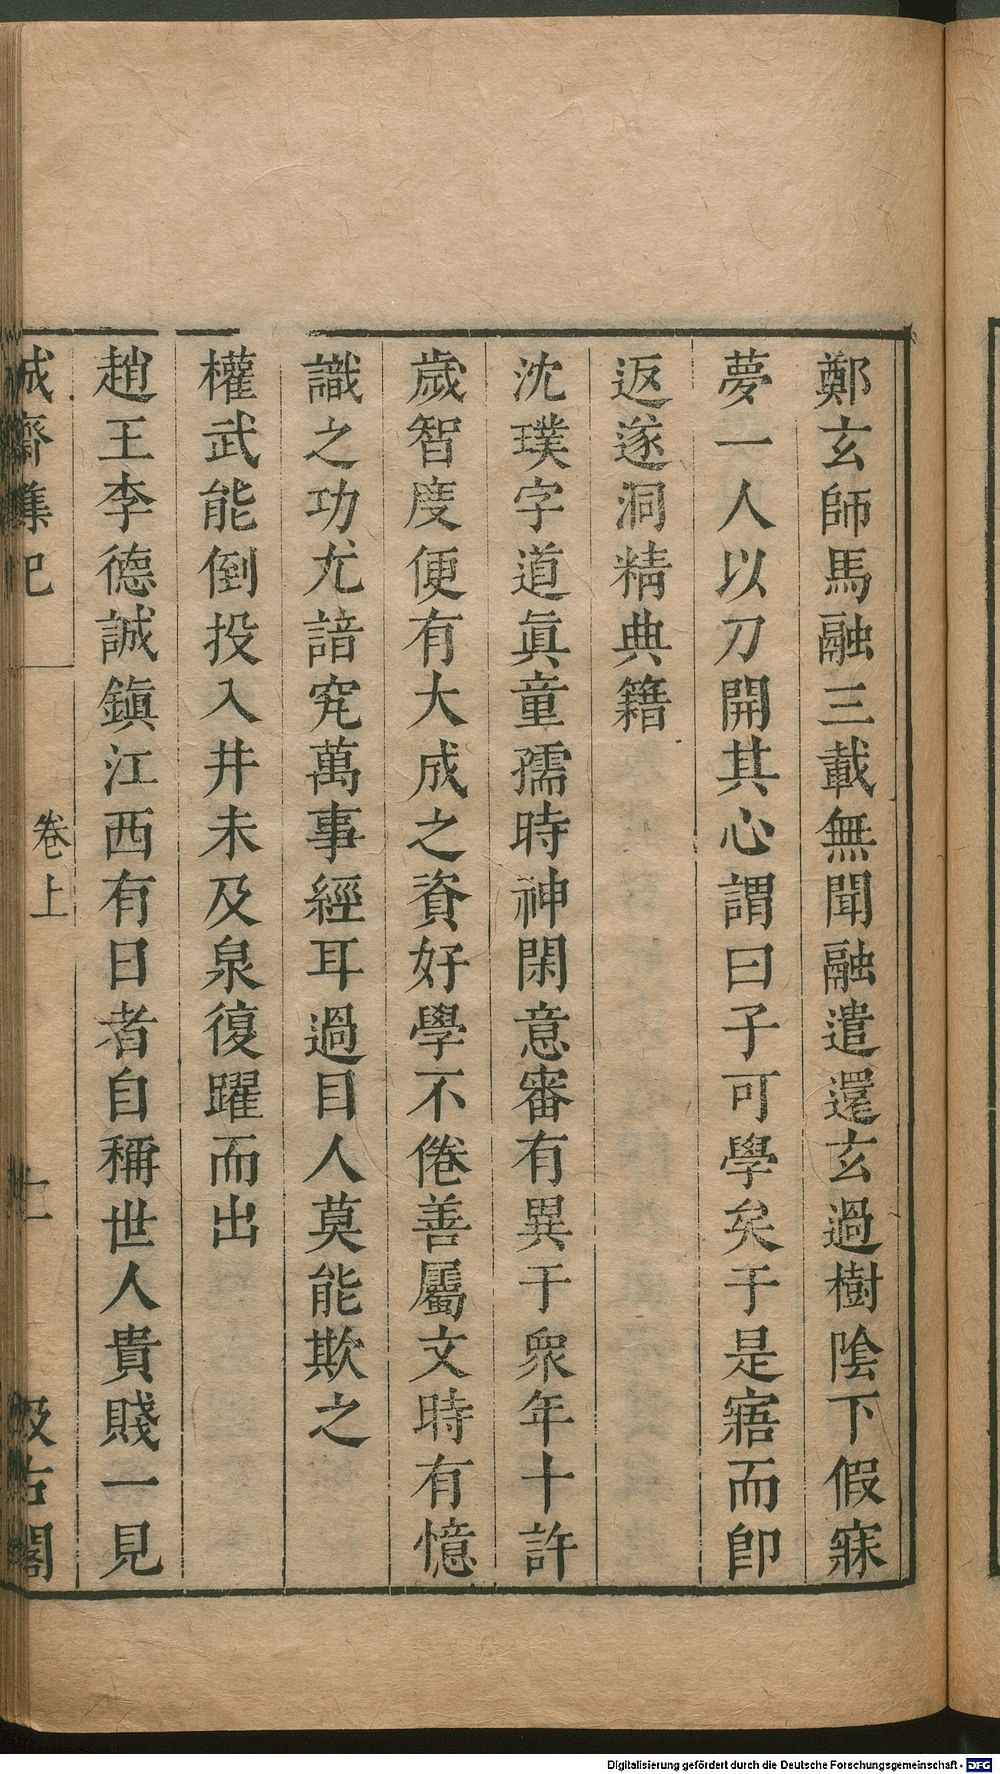 鄭玄師馬融三載無聞融遣還玄過樹陰下假寐
夢一人以刀開其心謂曰子可學矣于是寤而卽
返遂洞精典籍
沈璞字道眞童孺時神閑意審有異于衆年十許
歲智度便有大成之資好學不倦善屬文時有憶
識之功尤諳究萬事經耳過目人莫能欺之
權武能倒投入井未及泉復躍而出
趙王李德誠鎭江西有日者自稱世人貴賤一見
誠齋集巳 卷上 十一 汲古閣
Digitalisierung gefördert durch die Deutsche Forschungsgemeinschaft - DFG